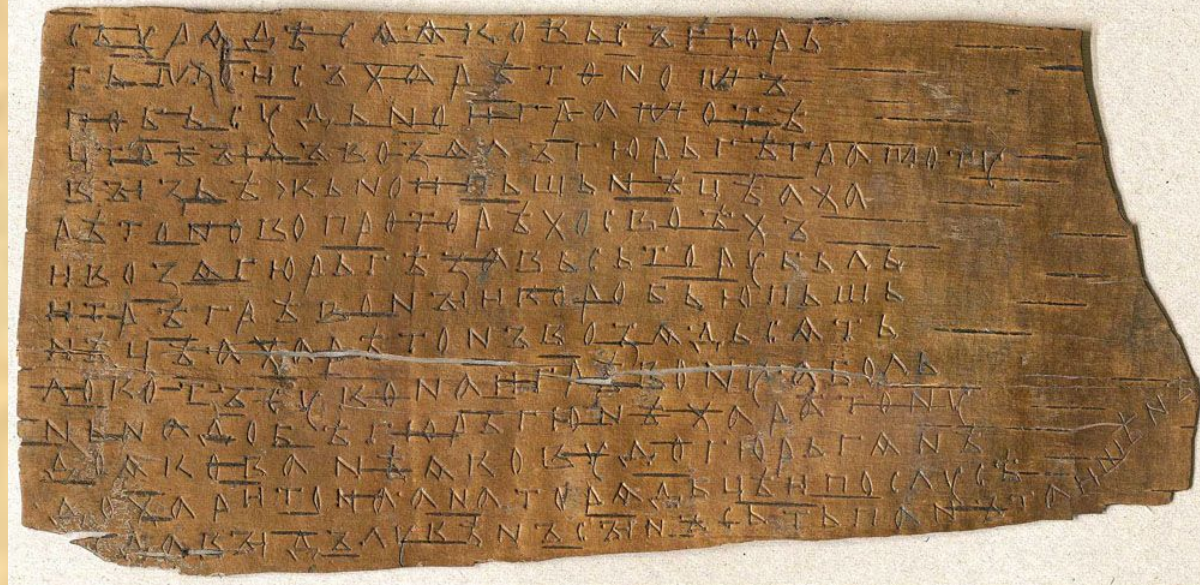 СЬ УРѦДѢСѦ ѦКОВЬ СЪ ГЮРЬ
ГЬМЪ И СЪ ХАРѢТОНОМЪ
ПО БЬСУДЬНОИ ГРАМОТѢ
ЦТО БЪІЛЪ ВОЗѦЛЪ ГЮРЬГѢ ГРАМОТУ
В ЪІЗЬѢЖЬНОИ ПЬШЬНѢЦѢ А ХА
РѢТОНО ВО ПРОТОРѢХО СВОѢХЪ
И ВОЗѦ ГЮРЬГѢ ЗА ВЬСЬ ТО РУБЬЛЬ
И ТРѢ ГРѢВОНЪІ И КОРОБЬЮ ПЬШЬ
НѢЦѢ А ХАРѢТОНЪ ВОЗѦ ДЬСѦТЬ
ЛОКОТЪ СУКОНА И ГРѢВОНУ А БОЛЬ
НЬ НАДОБѢ ГЮРЬГЮ НѢ ХАРѢТОНУ
ДО ѦКОВА НѢ ѦКОВУ ДО ГЮРЬГѦ НѢ
ДО ХАРИТОНА А НА ТО РѦДЬЦѢ И ПОСЛУСѢ
ДАВЪІДЪ ЛУКѢНЪ СЪІНЪ И СТЬПОНЪ